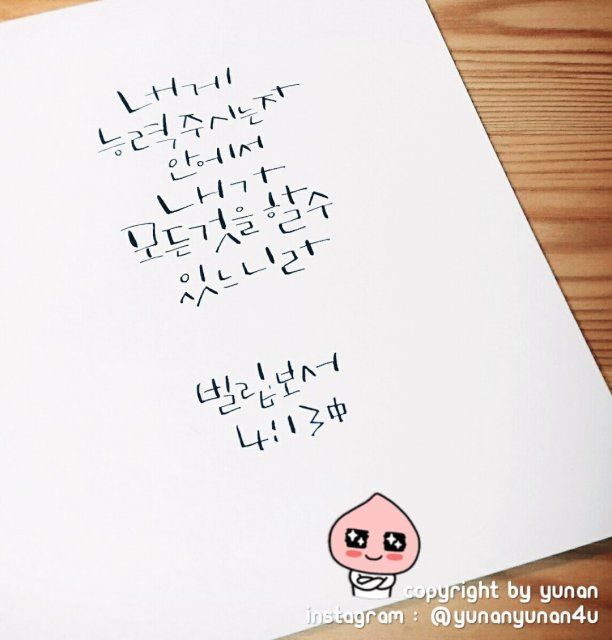 내게
능력주시는자
안에서
내가
모든것을 할수
있느니라
빌립보서
4:13中
copyright by yunan
instagram : @yunanyunan4u